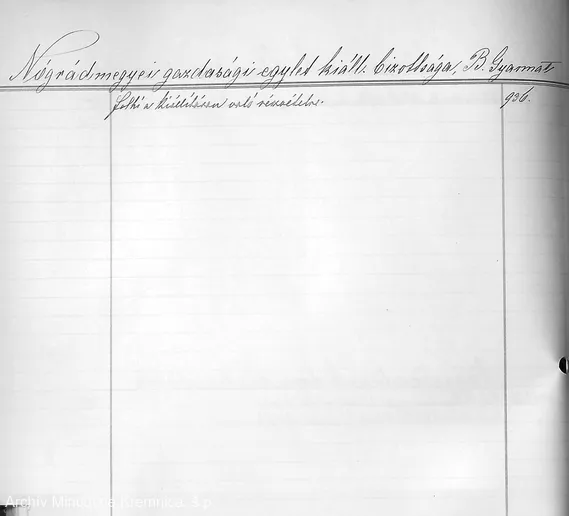 Nógrádmegyei gazdasági egylet kiáll. bizottsága, B. Gyarmat
felhí a kiállításon való részvételre.
936.
Archív Mincovne Kremnica, š.p.